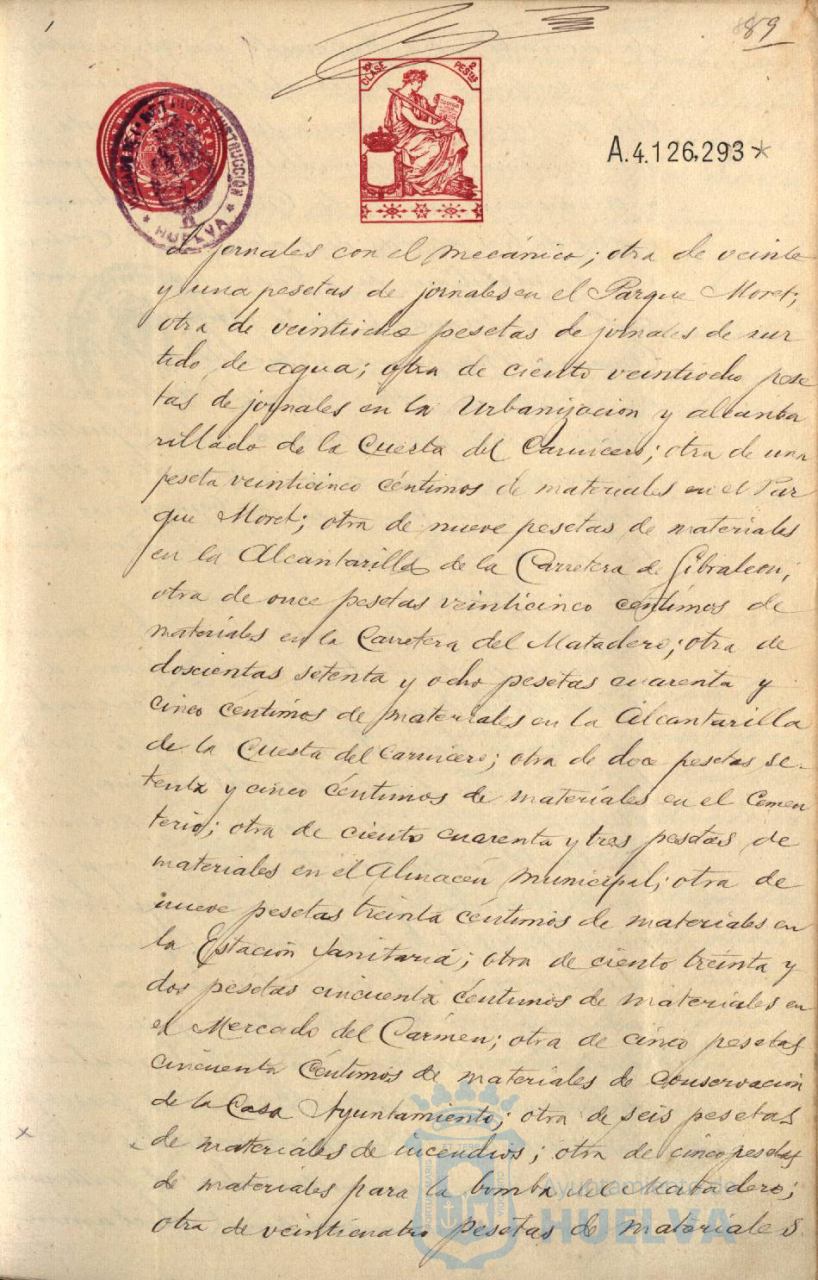 89
10ª CLASE 2 PESETAS
A.4.126,293*
HUELVA
de jornales con el mecánico; otra de veinte
y una pesetas de jornales en el Parque Moret;
otra de veintiocho pesetas de jornales de sur
tido de agua; otra de ciento veintiocho pese
tas de jornales en la Urbanizacion y alcanta
rillado de la Cuesta del Carnicero; otra de una
peseta veinticinco céntimos de materiales en el Par
que Moret; otra de nueve pesetas de materiales
en la Alcantarilla de la Carretera de Gibraleon;
otra de once pesetas veinticinco centimos de
materiales en la Carretera del Matadero; otra de
doscientas setenta y ocho pesetas cuarenta y
cinco céntimos de materiales en la Alcantarilla
de la Cuesta del Carnicero; otra de doce pesetas se-
tenta y cinco céntimos de materiales en el Cemen
terio; otra de ciento cuarenta y tres pesetas de
materiales en el Almacén municipal; otra de
nueve pesetas treinta céntimos de materiales en
la Estación Sanitaria; otra de ciento treinta y
dos pesetas cincuenta céntimos de materiales en
el Mercado del Cármen; otra de cinco pesetas
cincuenta céntimos de materiales de conservacion
de la Casa Ayuntamiento; otra de seis pesetas
de materiales de incendios; otra de cinco pesetas
de materiales para la bomba del Matadero;
otra de veinticuatro pesetas de materiales
Ayuntamiento de
HUELVA